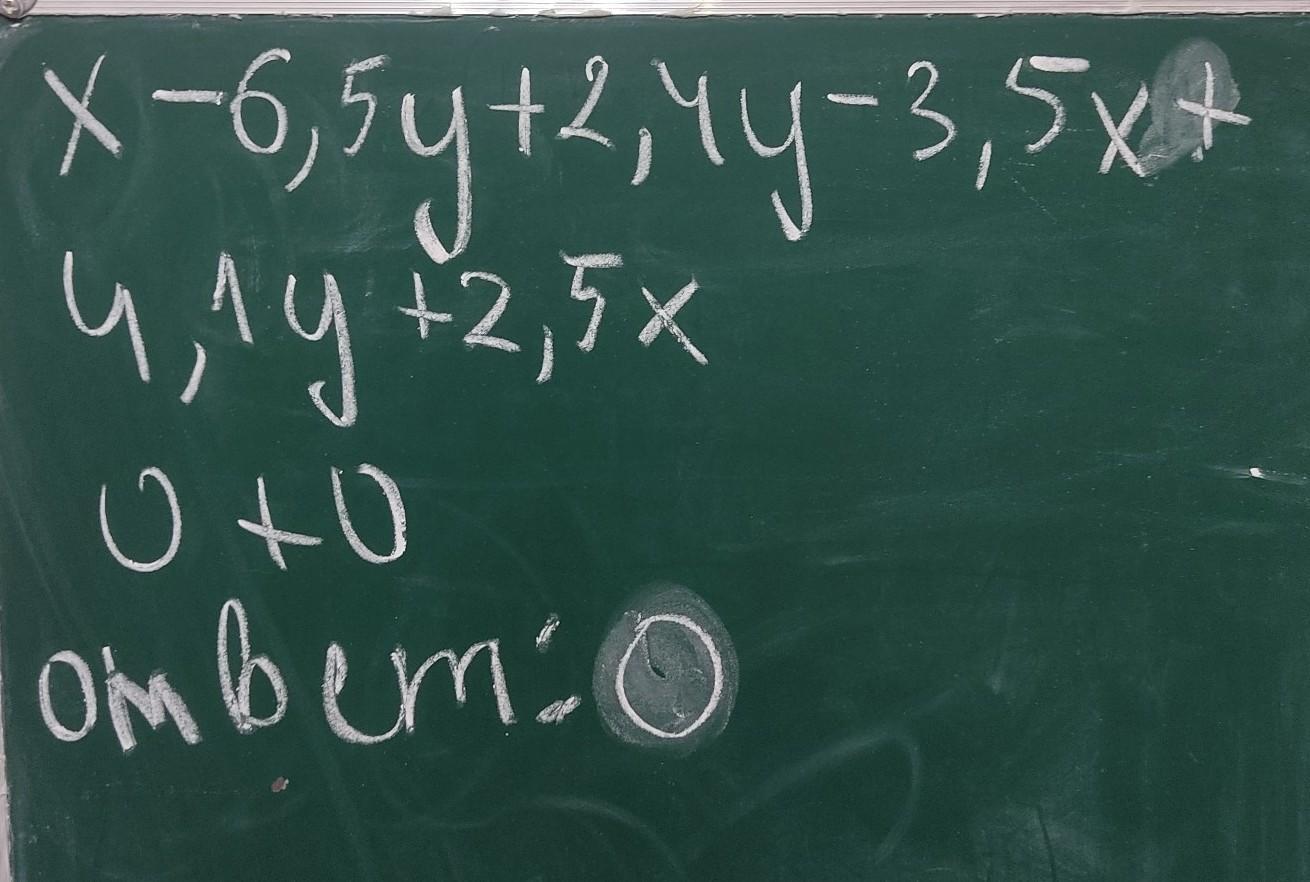 x - 6,5y + 2,4y - 3,5x +
4,1y + 2,5x
0 + 0
ответ: 0